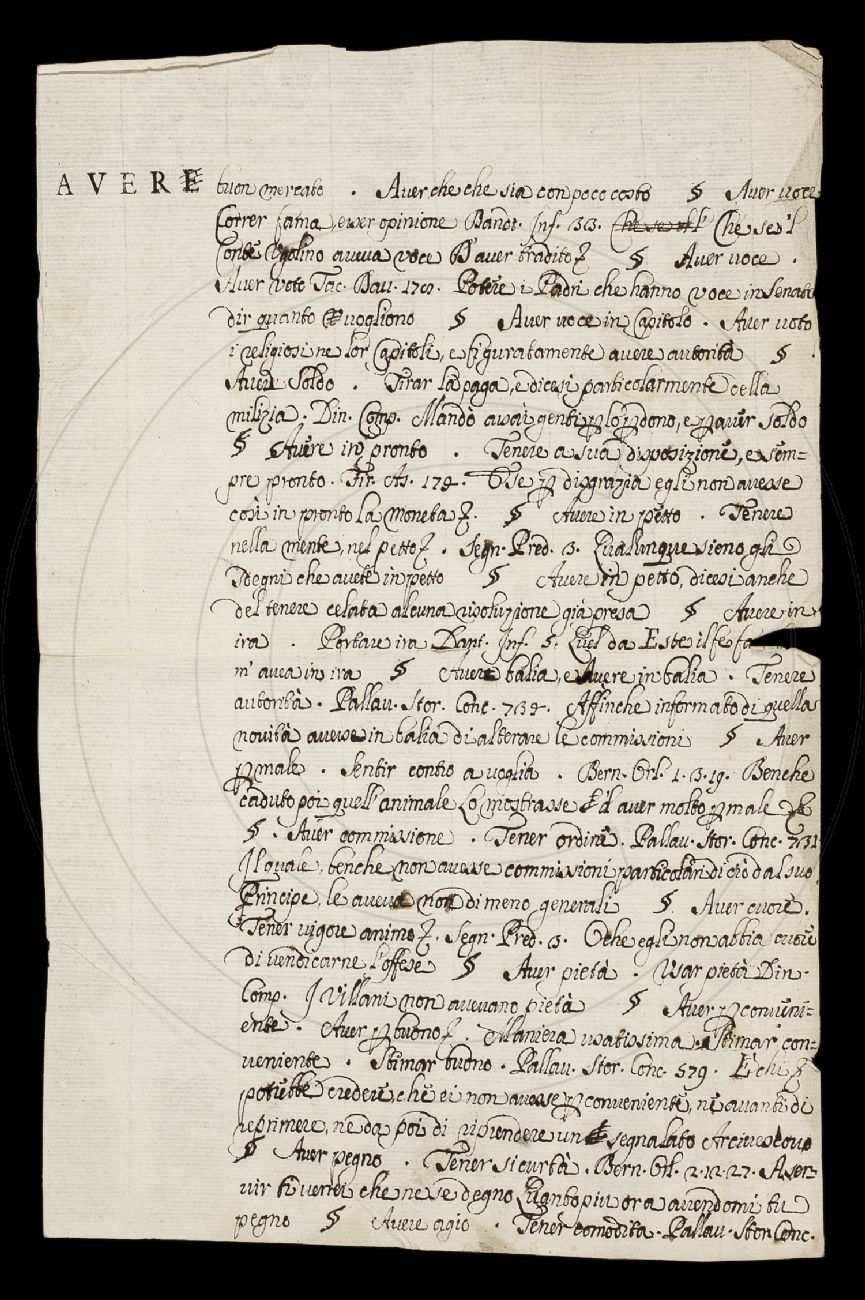 AVERE buon mercato . Aver che che sia con poco costo § Aver voce
Correr fama, ever opinione Dant. Inf. 33. Che se il Che se 'l
Conte Ugolino aveva voce D'aver tradito § Aver voce .
Aver voto Tac. Dav. 170. Potere i Padri che hanno voce in Senato
dir quanto vogliono § Aver voce in Capitolo . Aver voto
i religiosi ne lor Capitoli, e figuratamente avere autorità § .
Avere Soldo . Tirar la paga, e dicesi particolarmente della
milizia . Din. Comp. Mandò assai genti ꝑ lo ꝑdono, e ꝑ aver soldo
§ Avere in pronto . Tenere a sua disposizione, e sem=
pre pronto. Fir. As. 179. Se ꝑ disgrazia egli non avesse
così in pronto la moneta § Avere in petto . Tenere
nella mente, nel petto . Segn. Pred. 3. Qualunque sieno gli
sdegni che avete in petto § Avere in petto, dicesi anche
del tenere celata alcuna risoluzione già presa § Avere in
ira . Portare ira Dant. Inf. 5. Quel da Este il fe fa
m' avea in ira § Avere balia, e Avere in balia . Tenere
autorità . Pallav. Stor. Conc. 739. Affinche informato di quella
novità avesse in balia di alterare le commissioni § Aver
ꝑ male . Sentir contro a voglia . Bern. Orl. 1. 3. 19. Benche
caduto poi quell' animale Lo mostrasse d' aver molto ꝑ male
§ . Aver commissione . Tener ordine . Pallav. Stor. Conc. 731
Il quale, benche non avesse commissioni particolari di ciò dal suo
Principe, le aveva non di meno generali § Aver cuore .
Tener vigore animo . Segn. Pred. 3. O che egli non abbia cuore
di vendicarne l'offese § Aver pietà . Usar pietà Din.
Comp. I Villani non avevano pietà § Aver ꝑ conveni=
ente . Aver ꝑ buono . Maniera usatissima Stimar con=
veniente . Stimar buono . Pallav. Stor. Conc. 579. E chi
potrebbe credere, che ei non avesse ꝑ conveniente, ne avanti di
reprimere, ne da poi di riprendere un segnalato Arcivescovo
§ Aver pegno . Tener sicurtà . Bern. Orl. 2. 12. 27. A ser=
vir ti verrei che ne se degno Quanto piu ora avendomi tu
pegno § Avere agio . Tener comodità . Pallav. Stor. Conc.